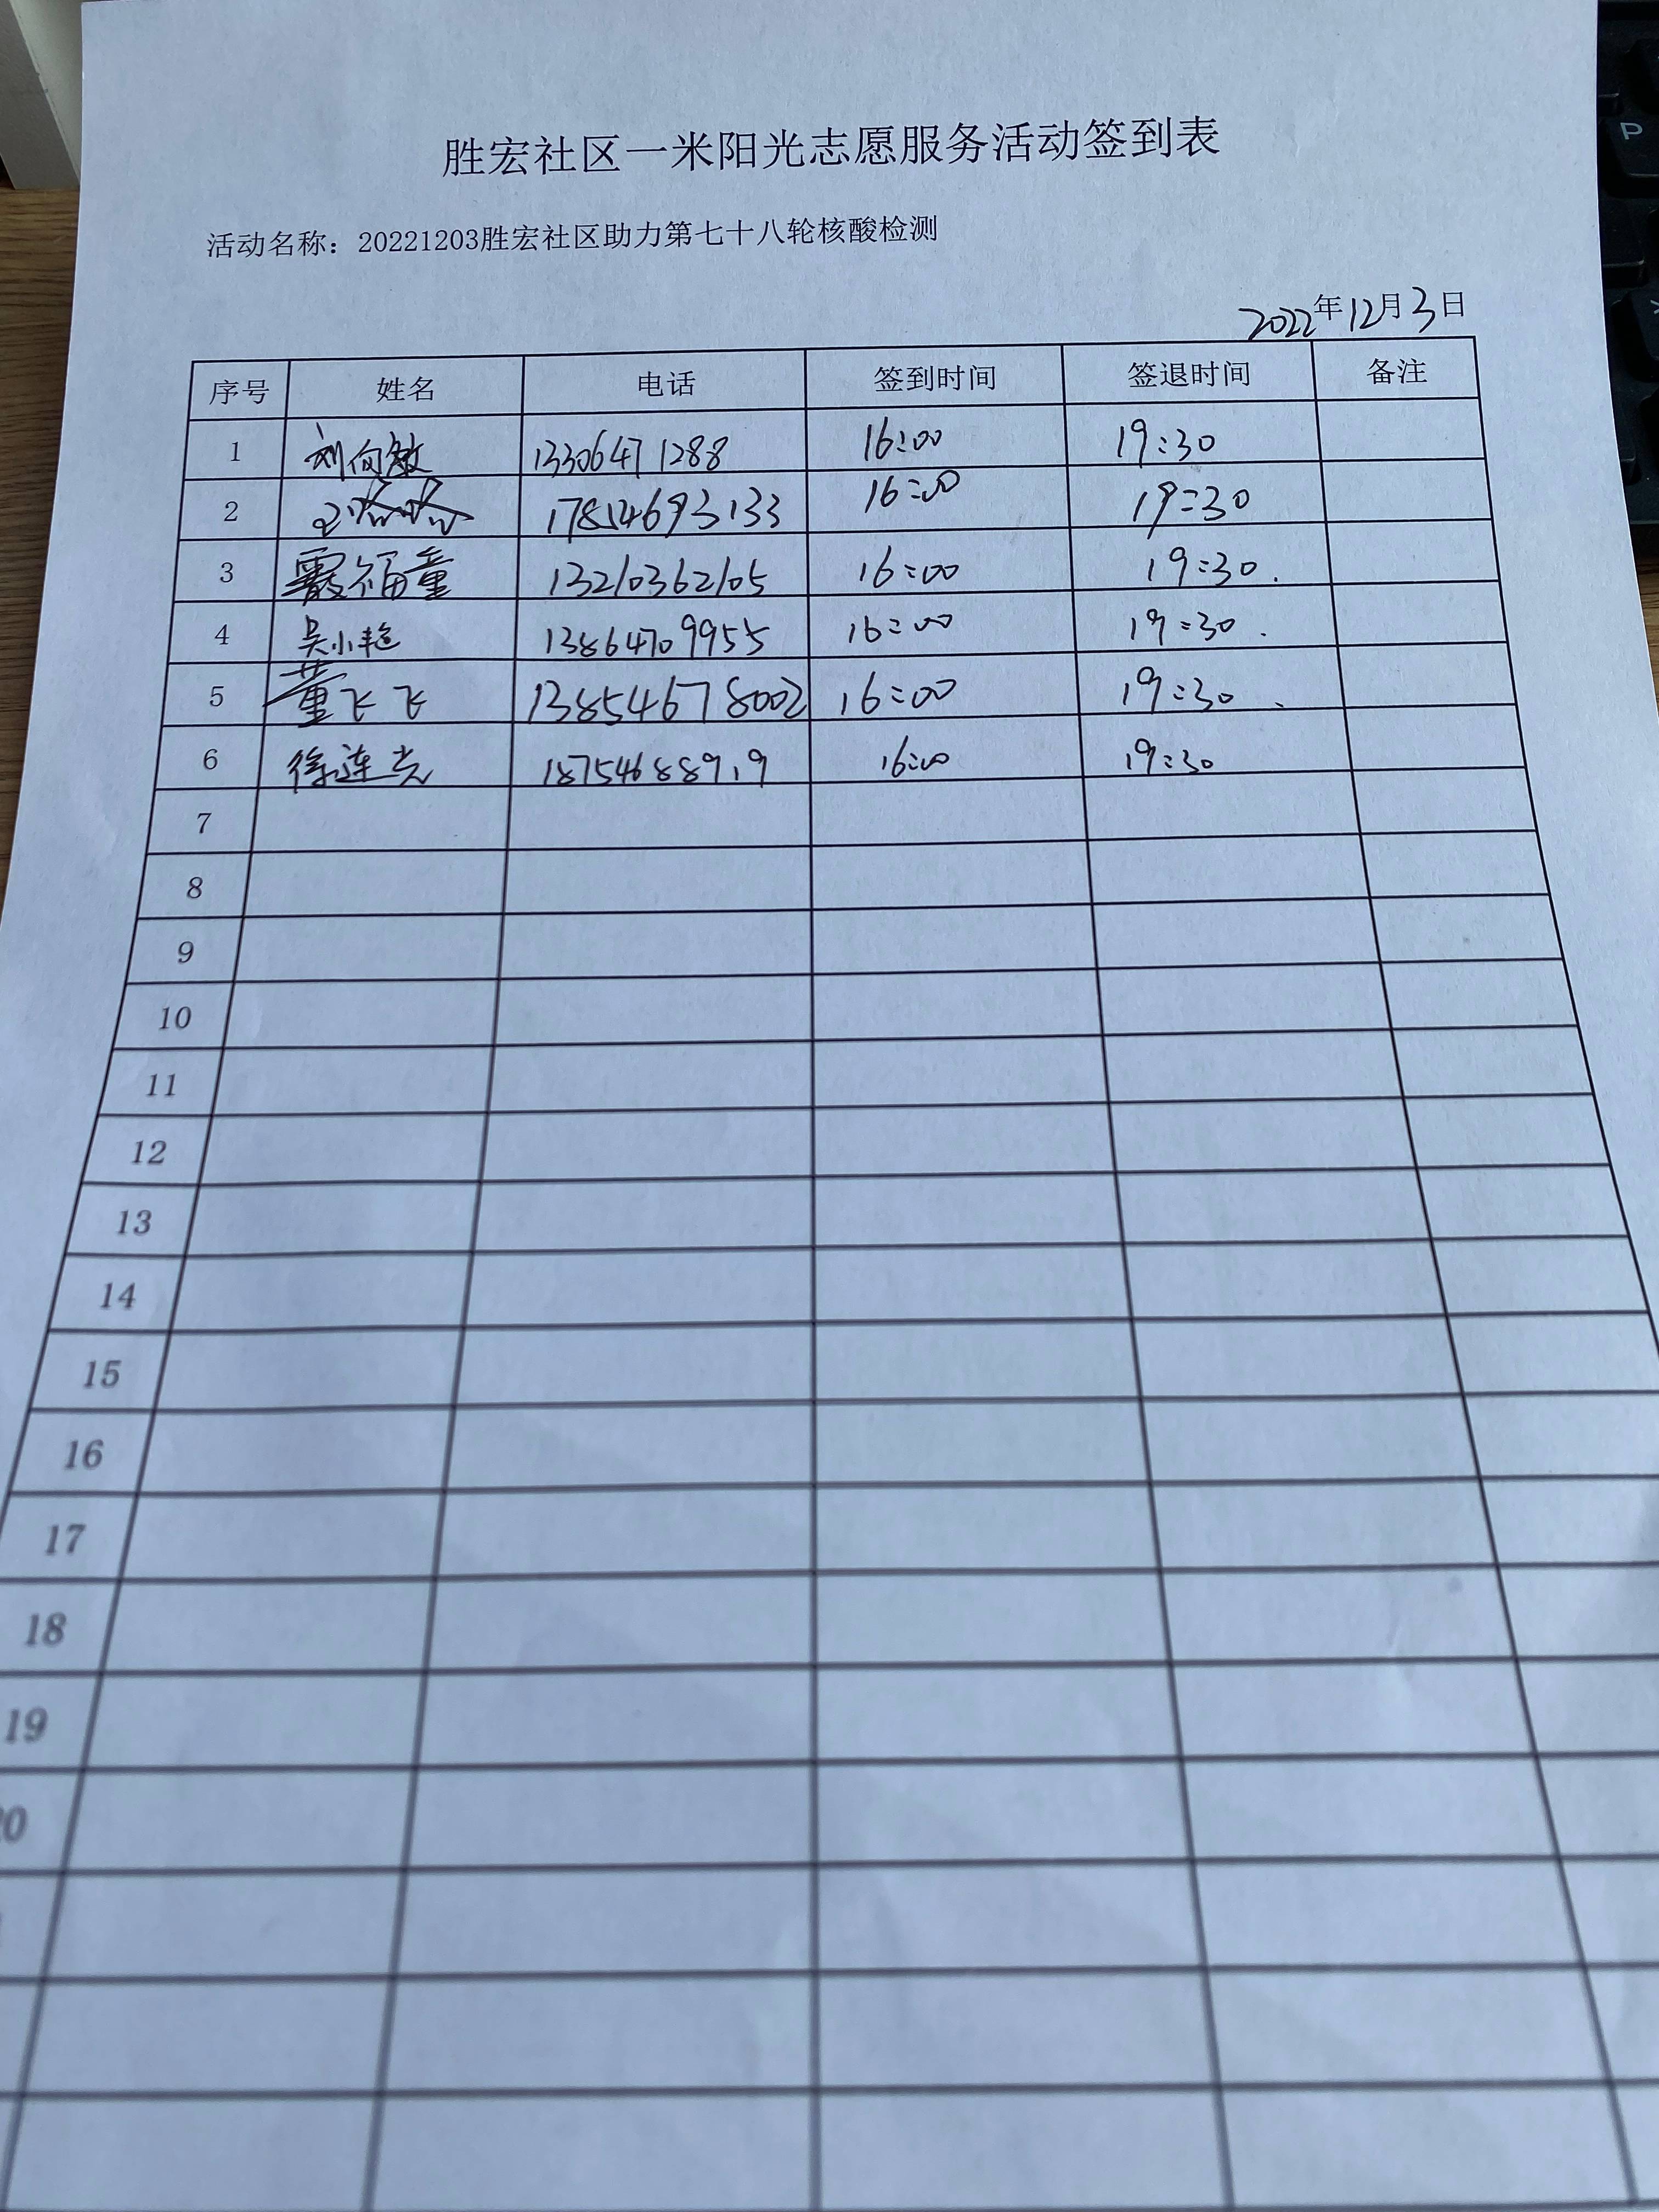 胜宏社区一米阳光志愿服务活动签到表
活动名称：20221203胜宏社区助力第七十八轮核酸检测
2022年12月3日
序号 姓名 电话 签到时间 签退时间 备注
1 刘向敏 13306471288 16:00 19:30
2 17814693133 16:00 19:30
3 霰福童 13210362105 16:00 19:30.
4 吴小艳 13864709955 16:00 19:30.
5 董飞飞 13854678002 16:00 19:30、
6 徐连光 18754688919 16:00 19:30
7
8
9
10
11
12
13
14
15
16
17
18
19
20